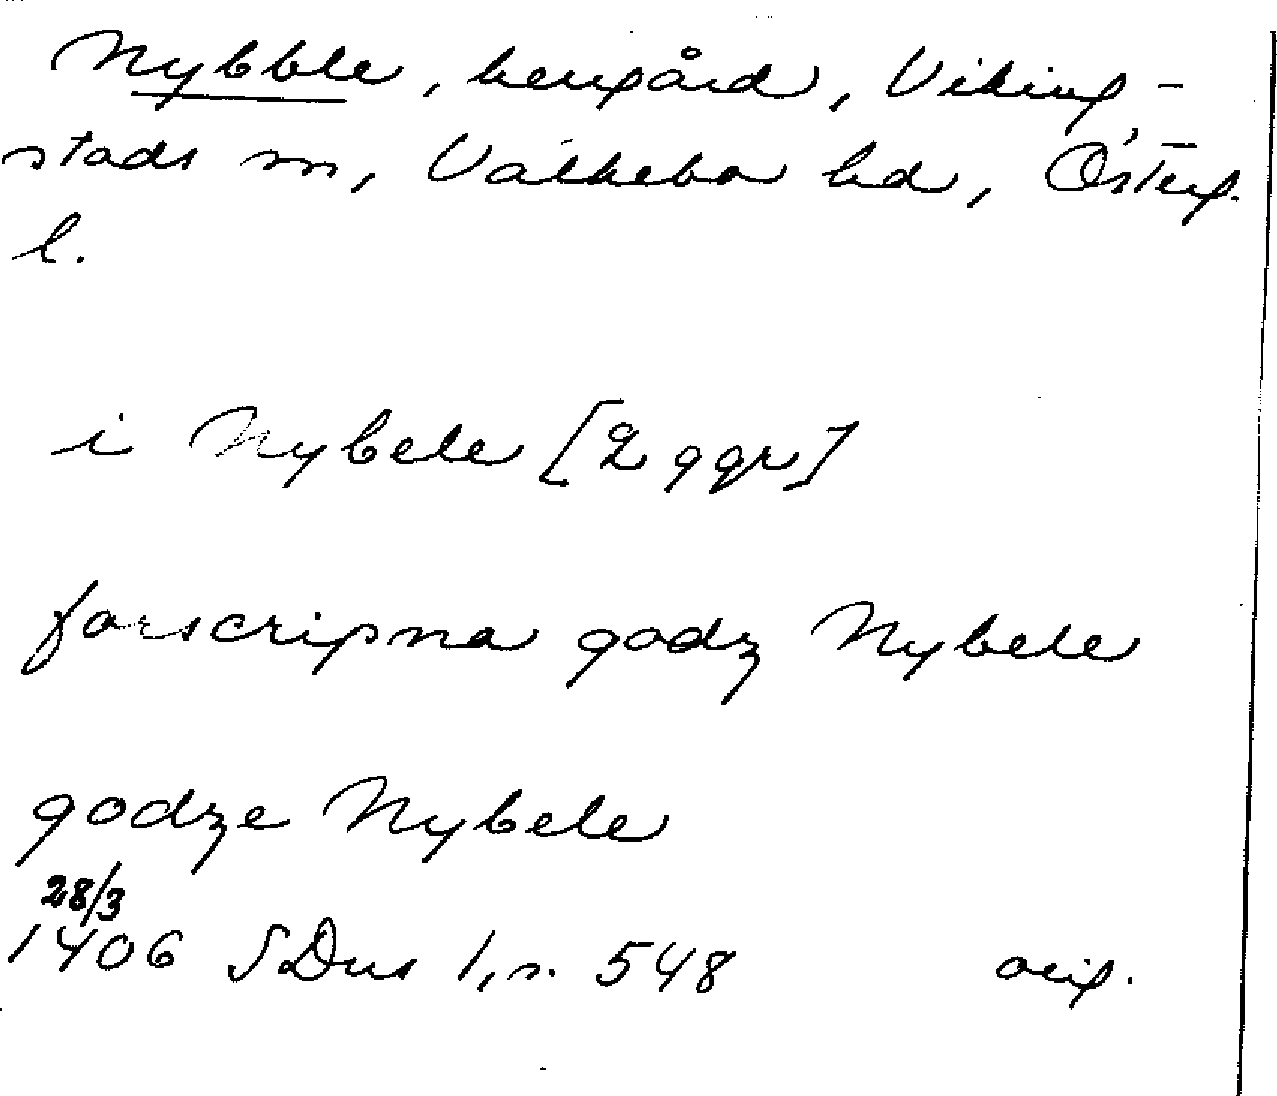 Nybble, herrgård, Viking-
stads sn, Valkebo hd, Österg.
l.
i Nybele [2 ggr]
forscripna godz Nybele
godze Nybele
28/3
1406 SDns 1, s. 548 orig.